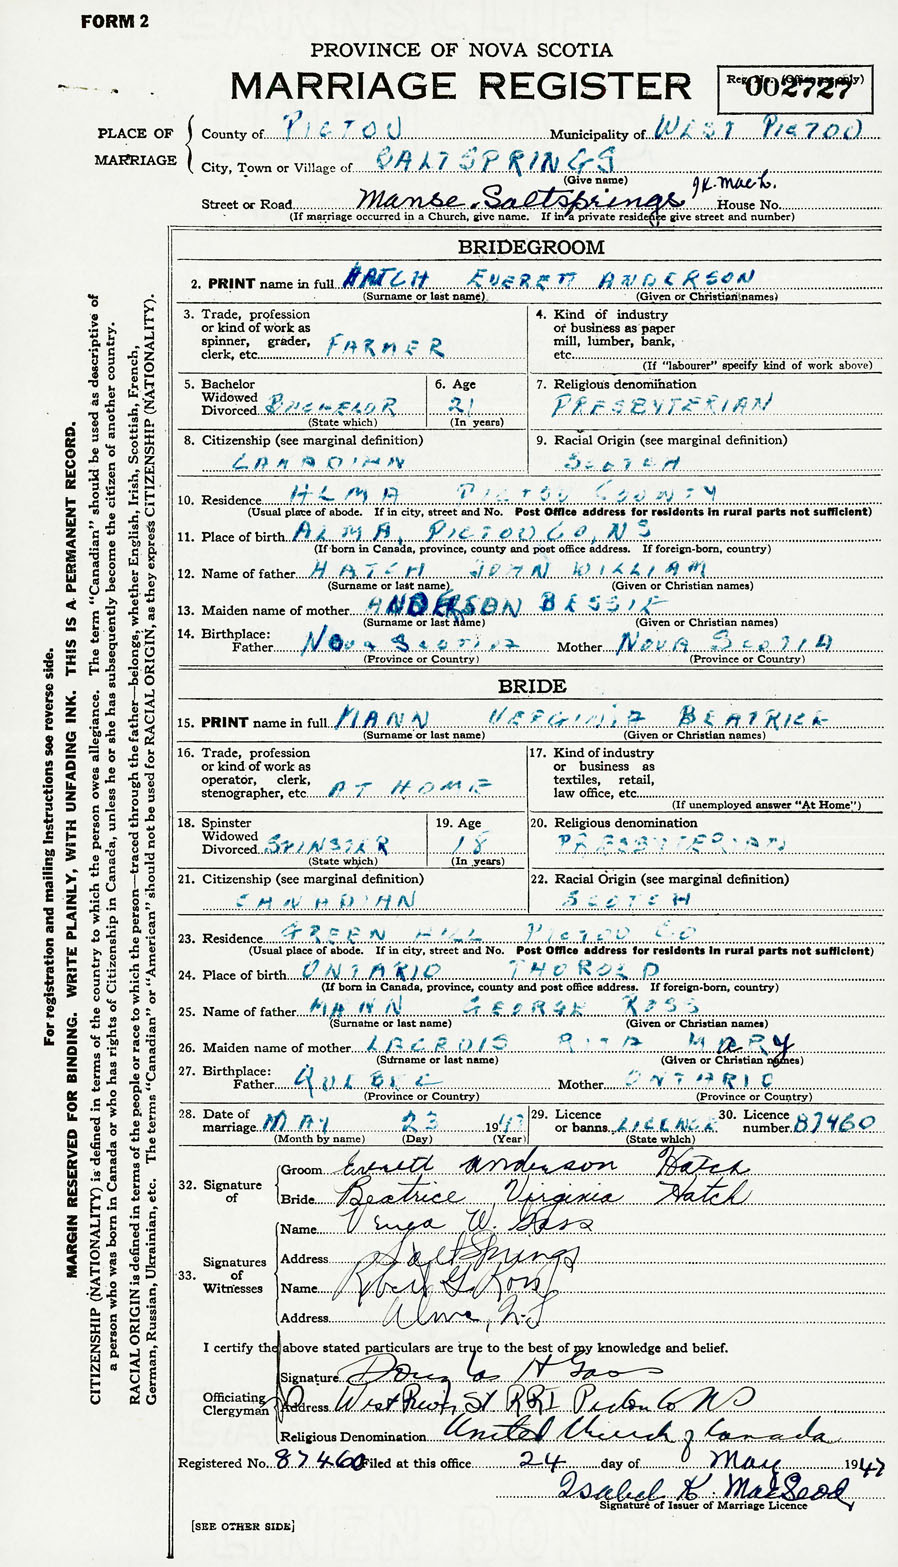 FORM 2
PROVINCE OF NOVA SCOTIA
MARRIAGE REGISTER
Reg. No. (Office use only)
002727
PLACE OF MARRIAGE
County of PICTOU Municipality of WEST PICTOU
City, Town or Village of SALTSPRINGS
(Give name)
I.K. MacL.
Street or Road Manse. Saltsprings House No.
(If marriage occurred in a Church, give name. If in a private residence give street and number)
BRIDEGROOM
2. PRINT name in full HATCH EVERETT ANDERSON
(Surname or last name) (Given or Christian names)
3. Trade, profession or kind of work as spinner, grader, clerk, etc. FARMER
4. Kind of industry or business as paper mill, lumber, bank, etc.
(If "labourer" specify kind of work above)
5. Bachelor Widowed Divorced BACHELOR
(State which)
6. Age 21
(In years)
7. Religious denomination
PRESBYTERIAN
8. Citizenship (see marginal definition)
CANADIAN
9. Racial Origin (see marginal definition)
SCOTCH
10. Residence ALMA PICTOU COUNTY
(Usual place of abode. If in city, street and No. Post Office address for residents in rural parts not sufficient)
11. Place of birth ALMA, PICTOU CO, NS
(If born in Canada, province, county and post office address. If foreign-born, country)
12. Name of father HATCH JOHN WILLIAM
(Surname or last name) (Given or Christian names)
13. Maiden name of mother ANDERSON BESSIE
(Surname or last name) (Given or Christian names)
14. Birthplace:
Father NOVA SCOTIA Mother NOVA SCOTIA
(Province or Country) (Province or Country)
BRIDE
15. PRINT name in full MANN VERGINIA BEATRICE
(Surname or last name) (Given or Christian names)
16. Trade, profession or kind of work as operator, clerk, stenographer, etc. AT HOME
17. Kind of industry or business as textiles, retail, law office, etc.
(If unemployed answer "At Home")
18. Spinster Widowed Divorced SPINSTER
(State which)
19. Age 18
(In years)
20. Religious denomination
PRESBYTERIAN
21. Citizenship (see marginal definition)
CANADIAN
22. Racial Origin (see marginal definition)
SCOTCH
23. Residence GREEN HILL PICTOU CO
(Usual place of abode. If in city, street and No. Post Office address for residents in rural parts not sufficient)
24. Place of birth ONTARIO THOROLD
(If born in Canada, province, county and post office address. If foreign-born, country)
25. Name of father MANN GEORGE ROSS
(Surname or last name) (Given or Christian names)
26. Maiden name of mother LACROIS RITA MARY
(Surname or last name) (Given or Christian names)
27. Birthplace:
Father QUEBEC Mother ONTARIO
(Province or Country) (Province or Country)
28. Date of marriage MAY 23 1947
(Month by name) (Day) (Year)
29. Licence or banns LICENCE
(State which)
30. Licence number 87460
32. Signature of
Groom Everett Anderson Hatch
Bride Beatrice Virginia Hatch
33. Signatures of Witnesses
Name W. Gass
Address Salt Springs
Name Robert G. Ross
Address Alma, N.S
I certify the above stated particulars are true to the best of my knowledge and belief.
Officiating Clergyman
Signature Douglas H Gass
Address West River St RR1 Pictou Co NS
Religious Denomination United Church of Canada
Registered No. 87460 Filed at this office 24 day of May 1947
Isabel K. MacLeod
Signature of Issuer of Marriage Licence
[SEE OTHER SIDE]
For registration and mailing instructions see reverse side.
MARGIN RESERVED FOR BINDING. WRITE PLAINLY, WITH UNFADING INK. THIS IS A PERMANENT RECORD.
CITIZENSHIP (NATIONALITY) is defined in terms of the country to which the person owes allegiance. The term "Canadian" should be used as descriptive of
a person who was born in Canada or who has rights of Citizenship in Canada, unless he or she has subsequently become the citizen of another country.
RACIAL ORIGIN is defined in terms of the people or race to which the person—traced through the father—belongs, whether English, Irish, Scottish, French,
German, Russian, Ukrainian, etc. The terms "Canadian" or "American" should not be used for RACIAL ORIGIN, as they express CITIZENSHIP (NATIONALITY).